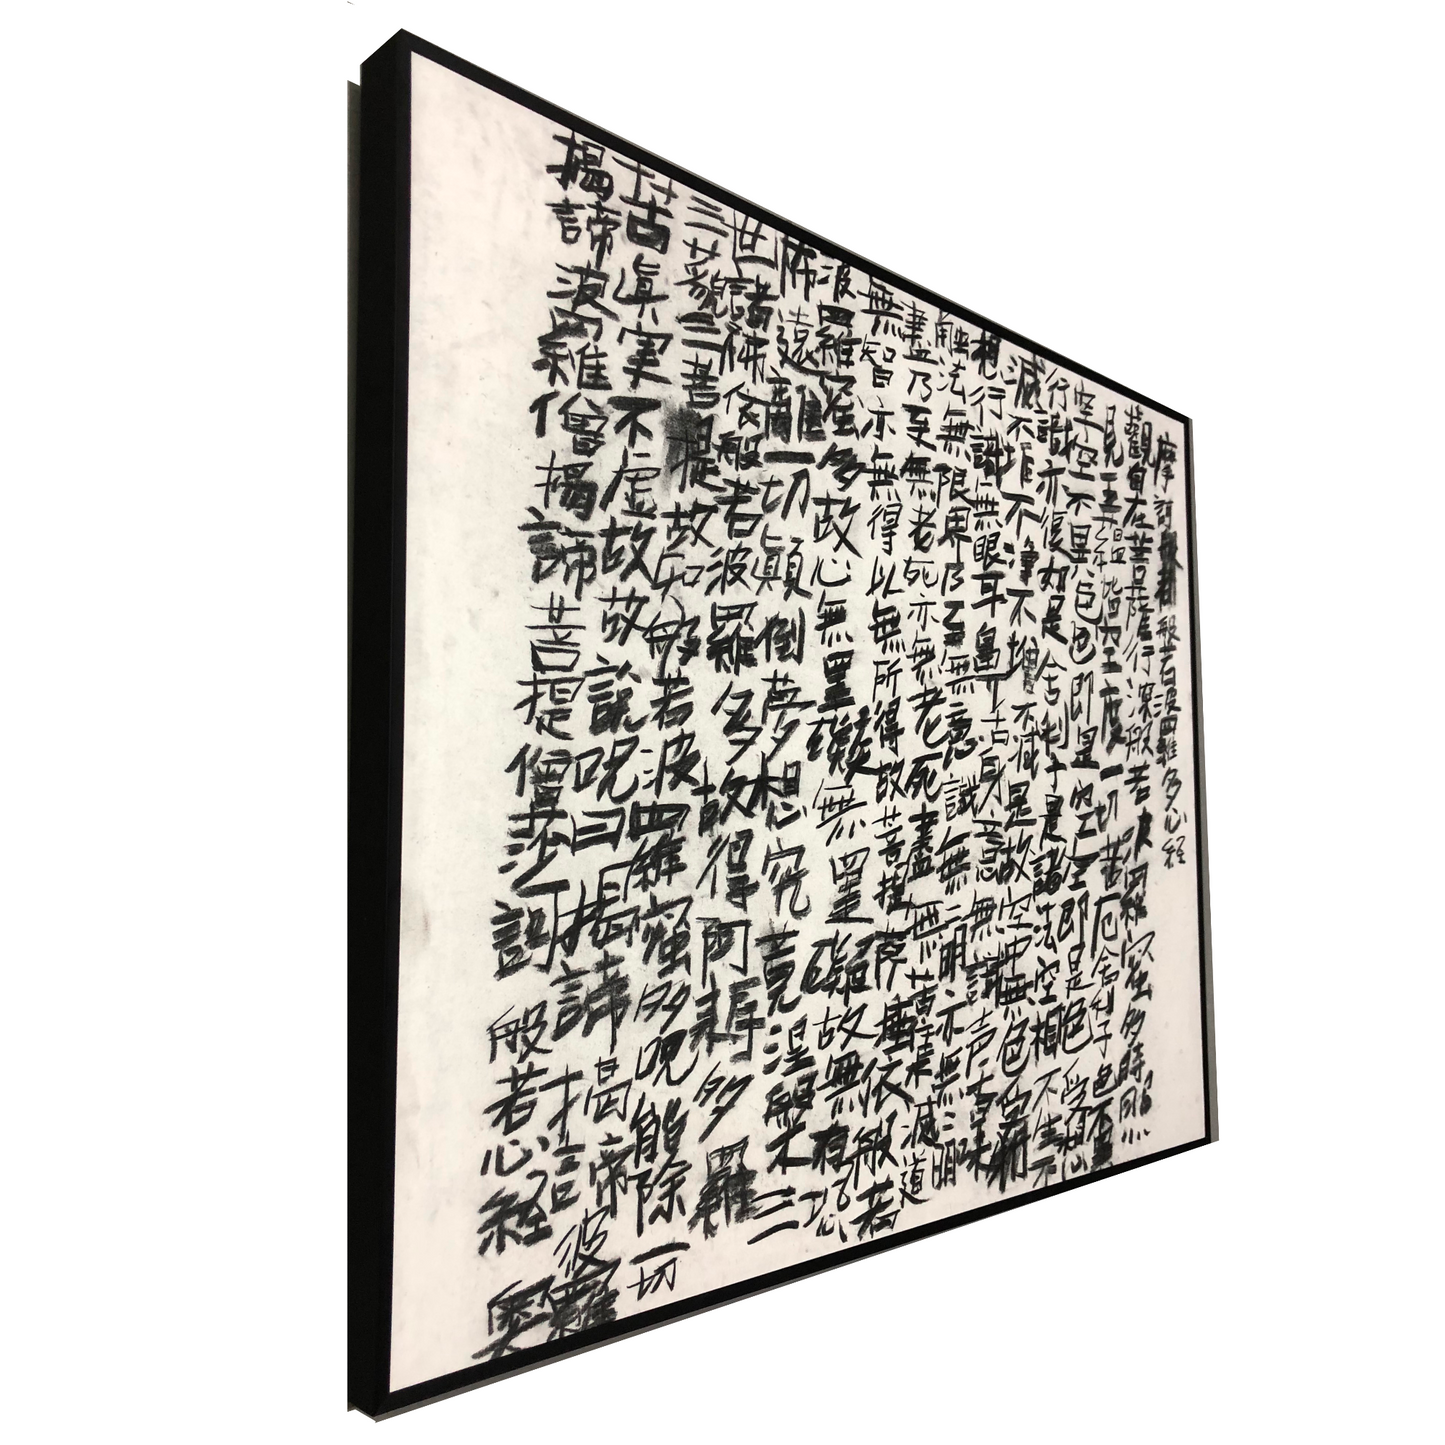 摩訶般若般若波羅多心経
觀自在菩薩行深般若波羅蜜多時照
見五蘊皆空度一切苦厄舍利子色不異
空空不異色色即是空空即是色受想
行識亦復如是舍利子是諸法空相不生不
滅不垢不淨不増不減是故空中無色無受
想行識無眼耳鼻舌身意無識声香味
触法無限界乃至無意識無無明亦無無明
盡乃至無老死亦無老死盡無苦集滅道
無智亦無得以無所得故菩提薩埵依般若
波羅蜜多故心無罣礙無罣礙故無有恐
怖遠離一切顛倒夢想究竟涅槃三
世諸佛依般若波羅多故得阿耨多羅
三藐三菩提故知般若波羅蜜多呪能除一切
苦真実不虚故故説呪曰掲諦掲帝波羅
揭諦波羅僧揭諦菩提僧莎訶般若心経